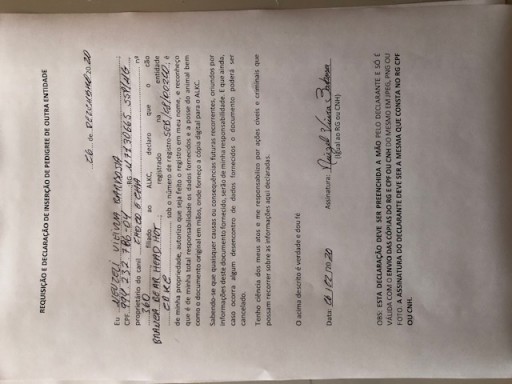 REQUISIÇÃO E DECLARAÇÃO DE INSERÇÃO DE PEDIGREE DE OUTRA ENTIDADE
de DEZEMBRO 20 20
Eu NEUZELI VIEIRA BARBOSA
CPF RG SSP/MG
proprietário do canil nª
360 filiado ao ALKC, declaro que o cão
registrado na entidade
sob o número de registro é
de minha propriedade, autorizo que seja feito o registro em meu nome, e reconheço
que é de minha total responsabilidade os dados fornecidos e a posse do animal bem
como o documento original em mãos, onde forneço a cópia digital para o ALKC.
Sabendo-se que quaisquer causas ou consequências futuras recorrentes, oriundos por
informações deste documento fornecido, serão de minha responsabilidade. E que ainda,
caso ocorra algum desencontro de dados fornecidos o documento poderá ser
cancelado.
Tenho ciência dos meus atos e me responsabilizo por ações cíveis e criminais que
possuam recorrer sobre as informações aqui declaradas.
O acima descrito é verdade e dou fé
Data: 20 Assinatura: Neuzeli Vieira Barbosa
(igual ao RG ou CNH)
OBS: ESTA DECLARAÇÃO DEVE SER PREENCHIDA A MÃO PELO DECLARANTE E SÓ É
VÁLIDA COM O ENVIO DAS CÓPIAS DO RG E CPF OU CNH DO MESMO EM JPEG, PNG OU
FOTO. A ASSINATURA DO DECLARANTE DEVE SER A MESMA QUE CONSTA NO RG CPF
OU CNH.